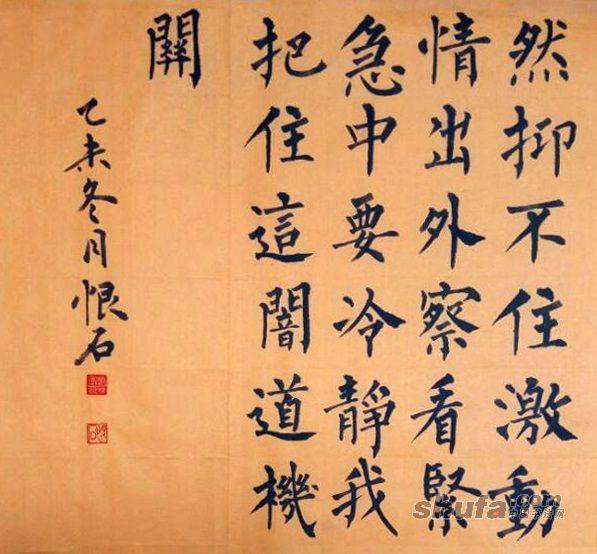 然抑不住激動
情出外察看緊
急中要冷靜我
把住這闇道機
關
乙未冬月恨石
shufa.com